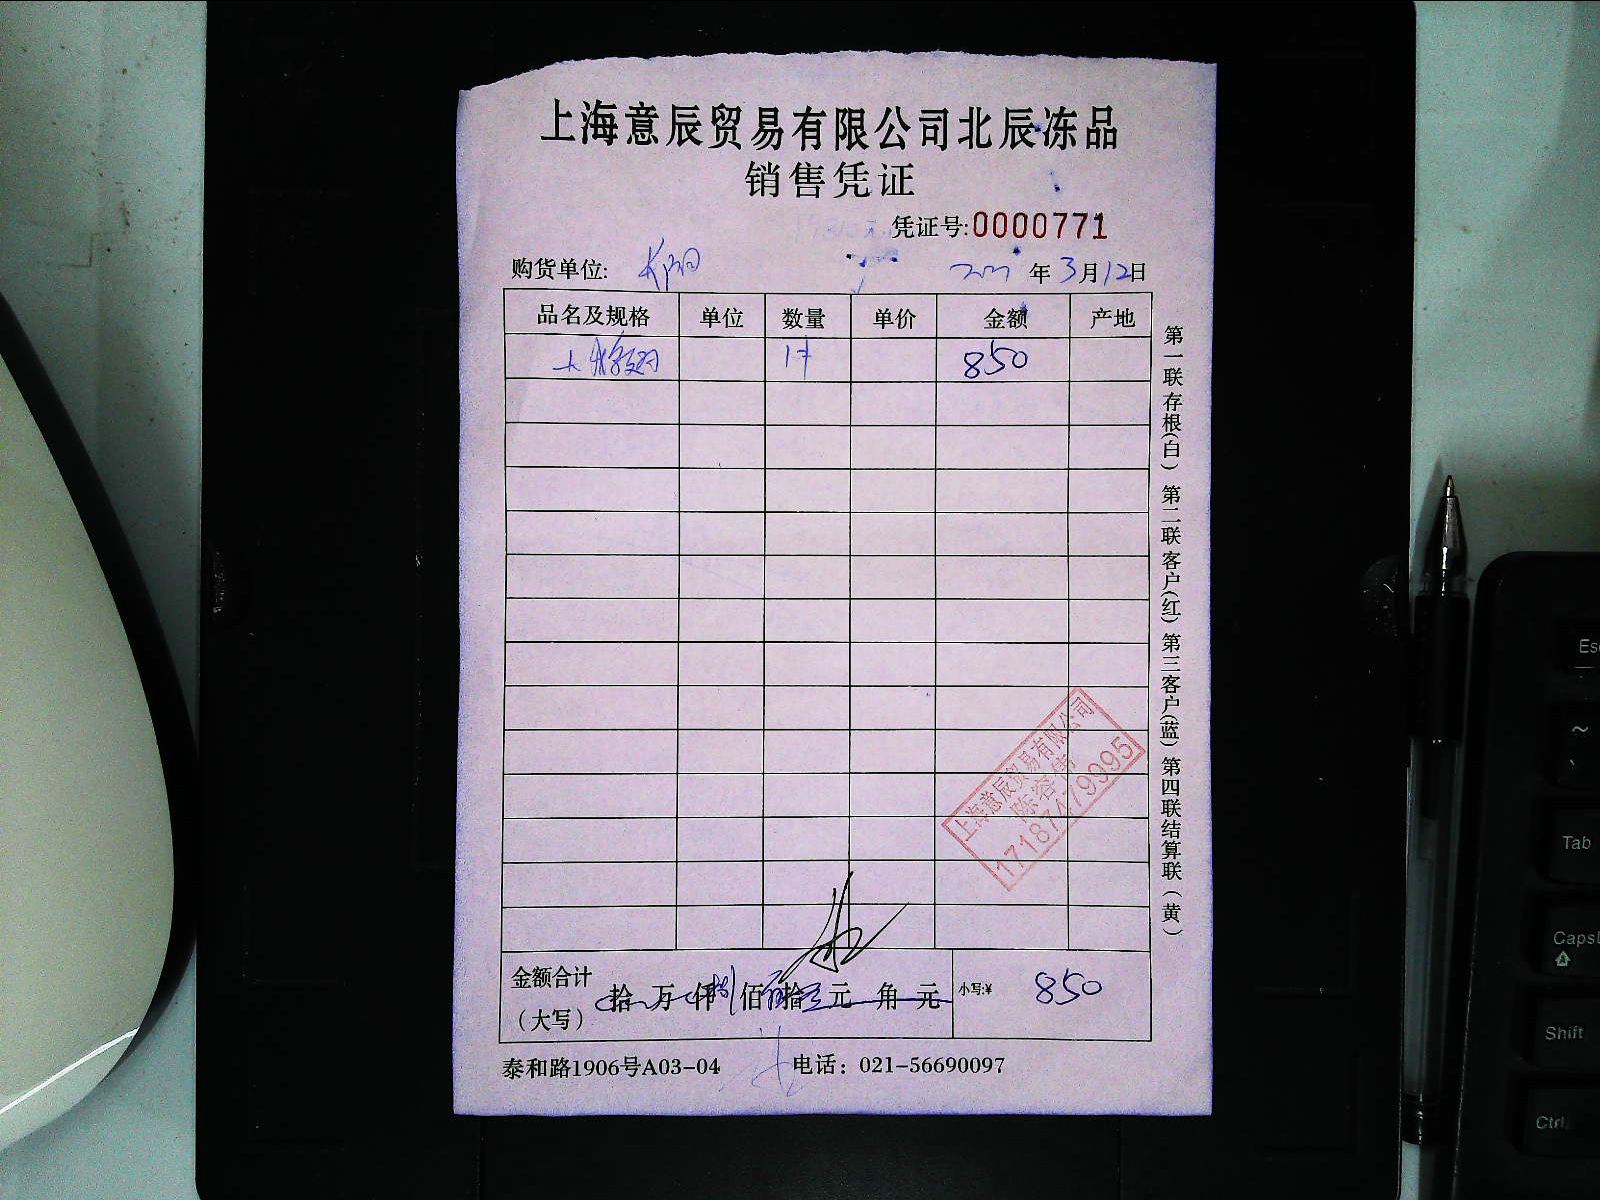 上海意辰贸易有限公司北辰冻品
销售凭证
凭证号:0000771
购货单位: 年3月12日
品名及规格 单位 数量 单价 金额 产地
1件 850
第一联存根(白) 第二联客户(红) 第三客户(蓝) 第四联结算联(黄)
上海意辰贸易有限公司
陈容伟
17187479995
金额合计
(大写) 拾 万 仟 捌 佰 拾 元 角 元 小写:¥ 850
泰和路1906号A03-04 电话: 021-56690097
Esc
~
、
Tab
Caps
Shift
Ctrl